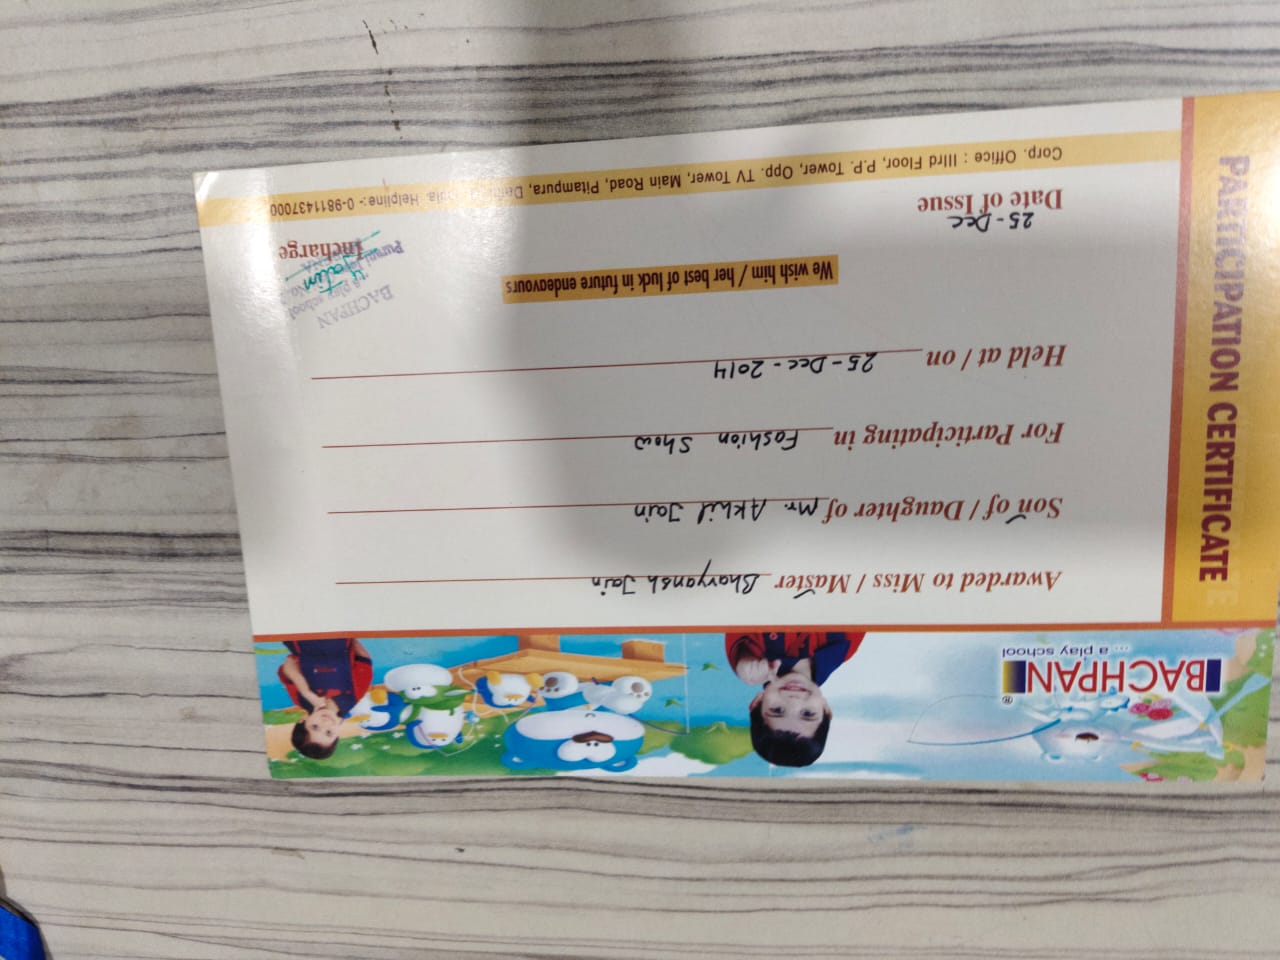 BACHPAN®
... a play school
PARTICIPATION CERTIFICATE
Awarded to Miss / Master Bhavyansh Jain
Son of / Daughter of Mr. Akhil Jain
For Participating in Fashion Show
Held at / on 25-Dec-2014
We wish him / her best of luck in future endeavours
BACHPAN
a play school
25-Dec
Date of Issue
Incharge
Corp. Office : IIIrd Floor, P.P. Tower, Opp. TV Tower, Main Road, Pitampura, Helpline :- 0-9811437000